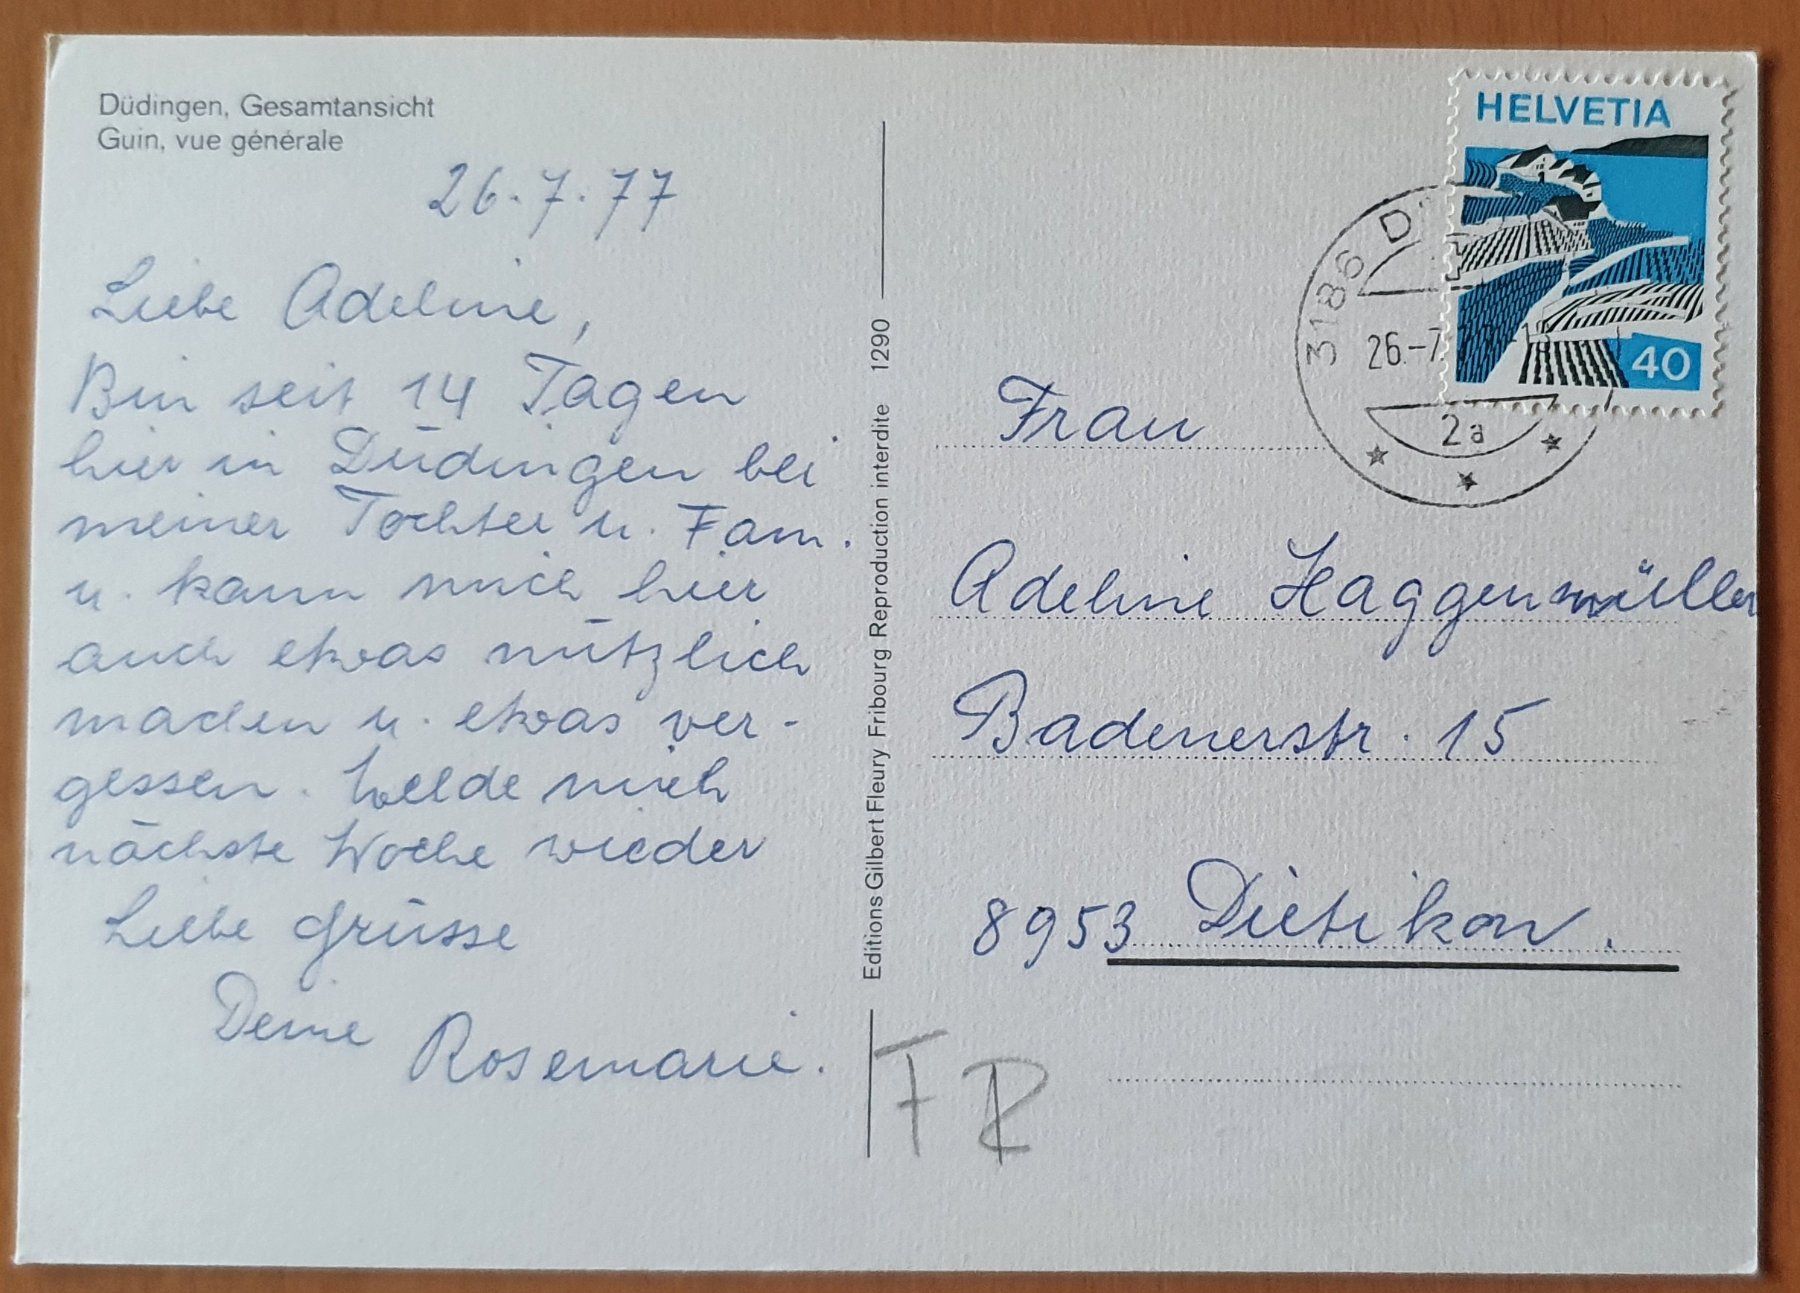 Düdingen, Gesamtansicht
Guin, vue générale
26.7.77
Liebe Adeline,
Bin seit 14 Tagen
hier in Düdingen bei
meiner Tochter u. Fam.
u. kann mich hier
auch etwas nützlich
machen u. etwas ver-
gessen. Melde mich
nächste Woche wieder
Liebe Grüsse
Deine Rosemarie.
Editions Gilbert Fleury Fribourg Reproduction interdite 1290
HELVETIA
40
3186 D
26.-7.
2a
Frau
Adeline Haggenmüller
Badenerstr. 15
8953 Dietikon.
FR